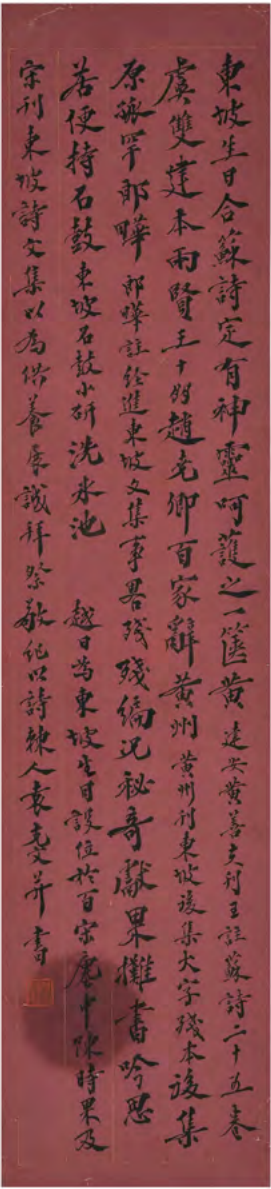 東坡生日合蘇詩定有神靈呵護之一篋黃建安黃善夫刊王註蘇詩二十五卷
虞雙建本兩賢王十朋趙堯卿百家辭黃州黃州刊東坡後集大字殘本後集
原號罕郎曄郎曄註經進東坡文集事畧殘殘編況秘奇獻果攤書吟思
若便持石鼓東坡石鼓小研洗冰池 越日為東坡生日設位於百宋廛中陳時果及
宋刊東坡詩文集以為供養展讌拜祭敬紀以詩棘人袁克文并書